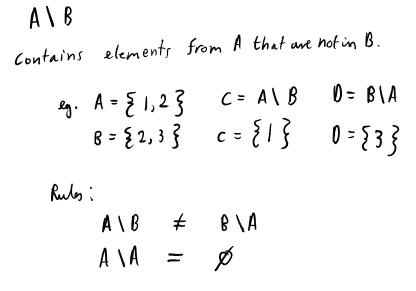 A \ B
Contains elements from A that are not in B.
eg. A = {1,2} C = A \ B D = B \ A
B = {2,3} C = {1} D = {3}
Rules:
A \ B ≠ B \ A
A \ A = ∅